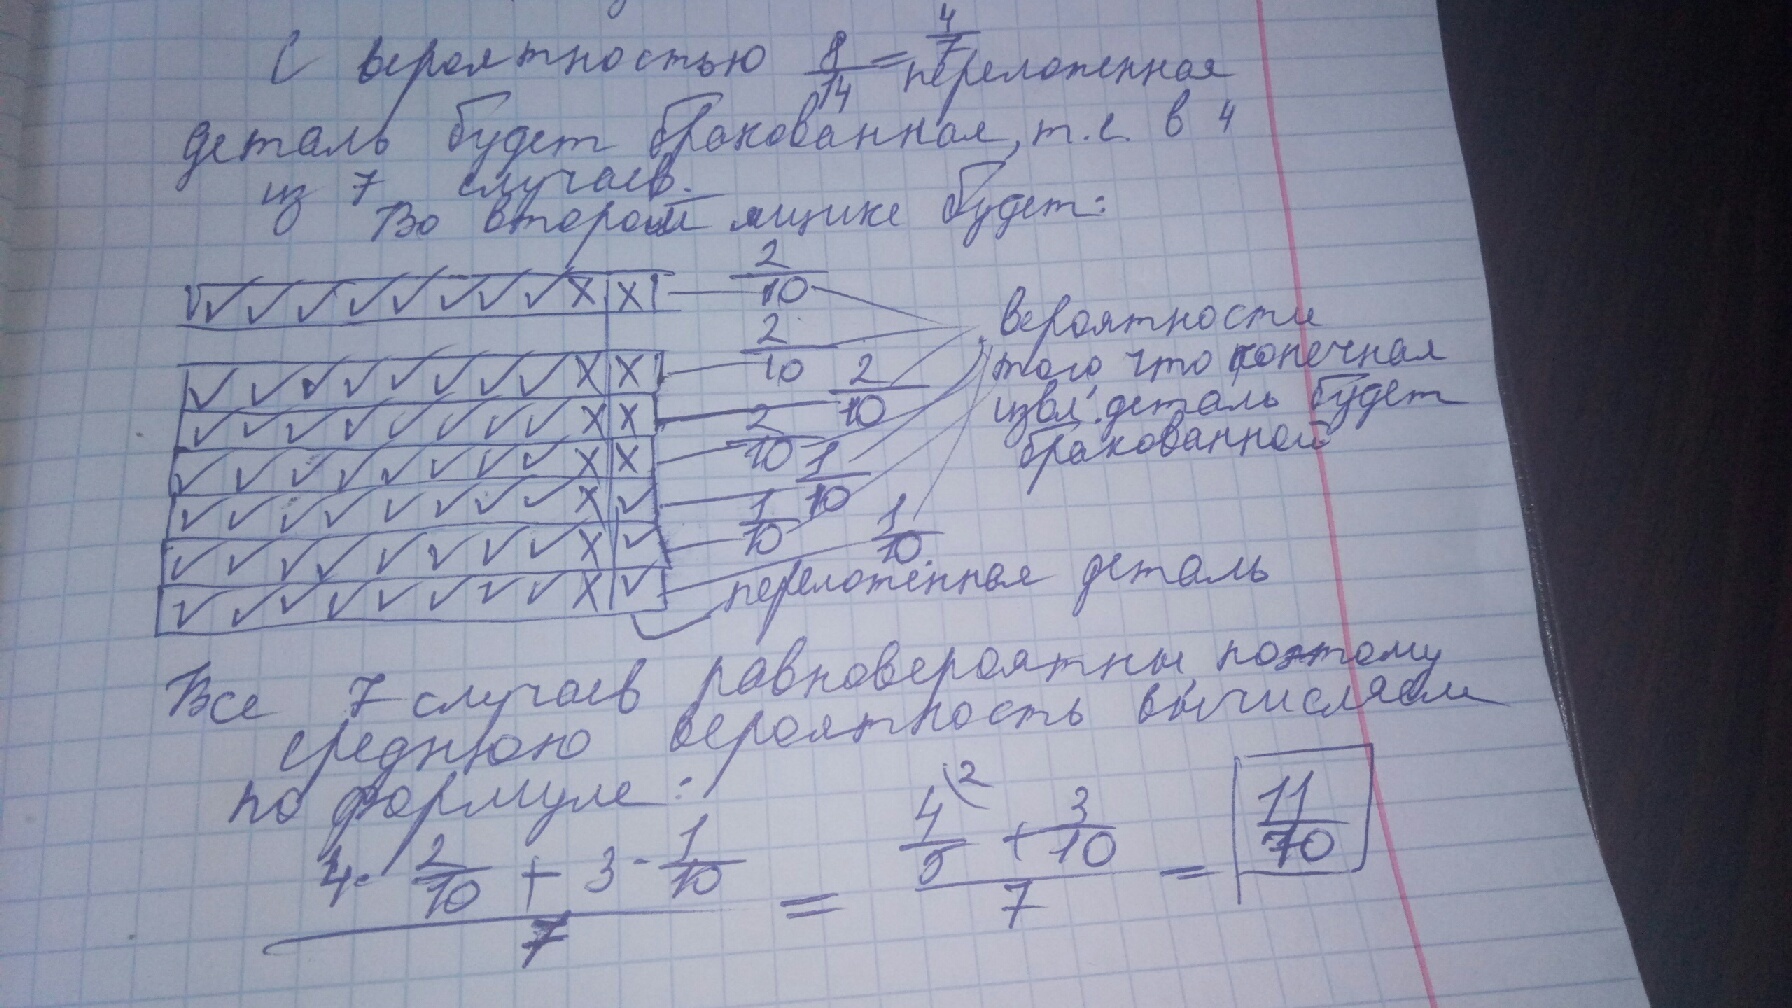 С вероятностью 8/14 = 4/7 переложенная
деталь будет бракованная, т.е. в 4
из 7 случаев.
Во второй ящике будет:
✓✓✓✓✓✓✓✓✓X|X 2/10
✓✓✓✓✓✓✓✓X|X 2/10
✓✓✓✓✓✓✓✓✓X|X 2/10
✓✓✓✓✓✓✓✓X|X 2/10
✓✓✓✓✓✓✓✓✓X|✓ 1/10
✓✓✓✓✓✓✓✓X|✓ 1/10
✓✓✓✓✓✓✓✓X|✓ 1/10
вероятности
того что конечная
извл. деталь будет
бракованной
переложенная деталь
Все 7 случаев равновероятны, поэтому
среднюю вероятность вычисляем
по формуле:
(4 · 2/10 + 3 · 1/10)/7 = (4/5 ⁽² + 3/10)/7 = 11/70